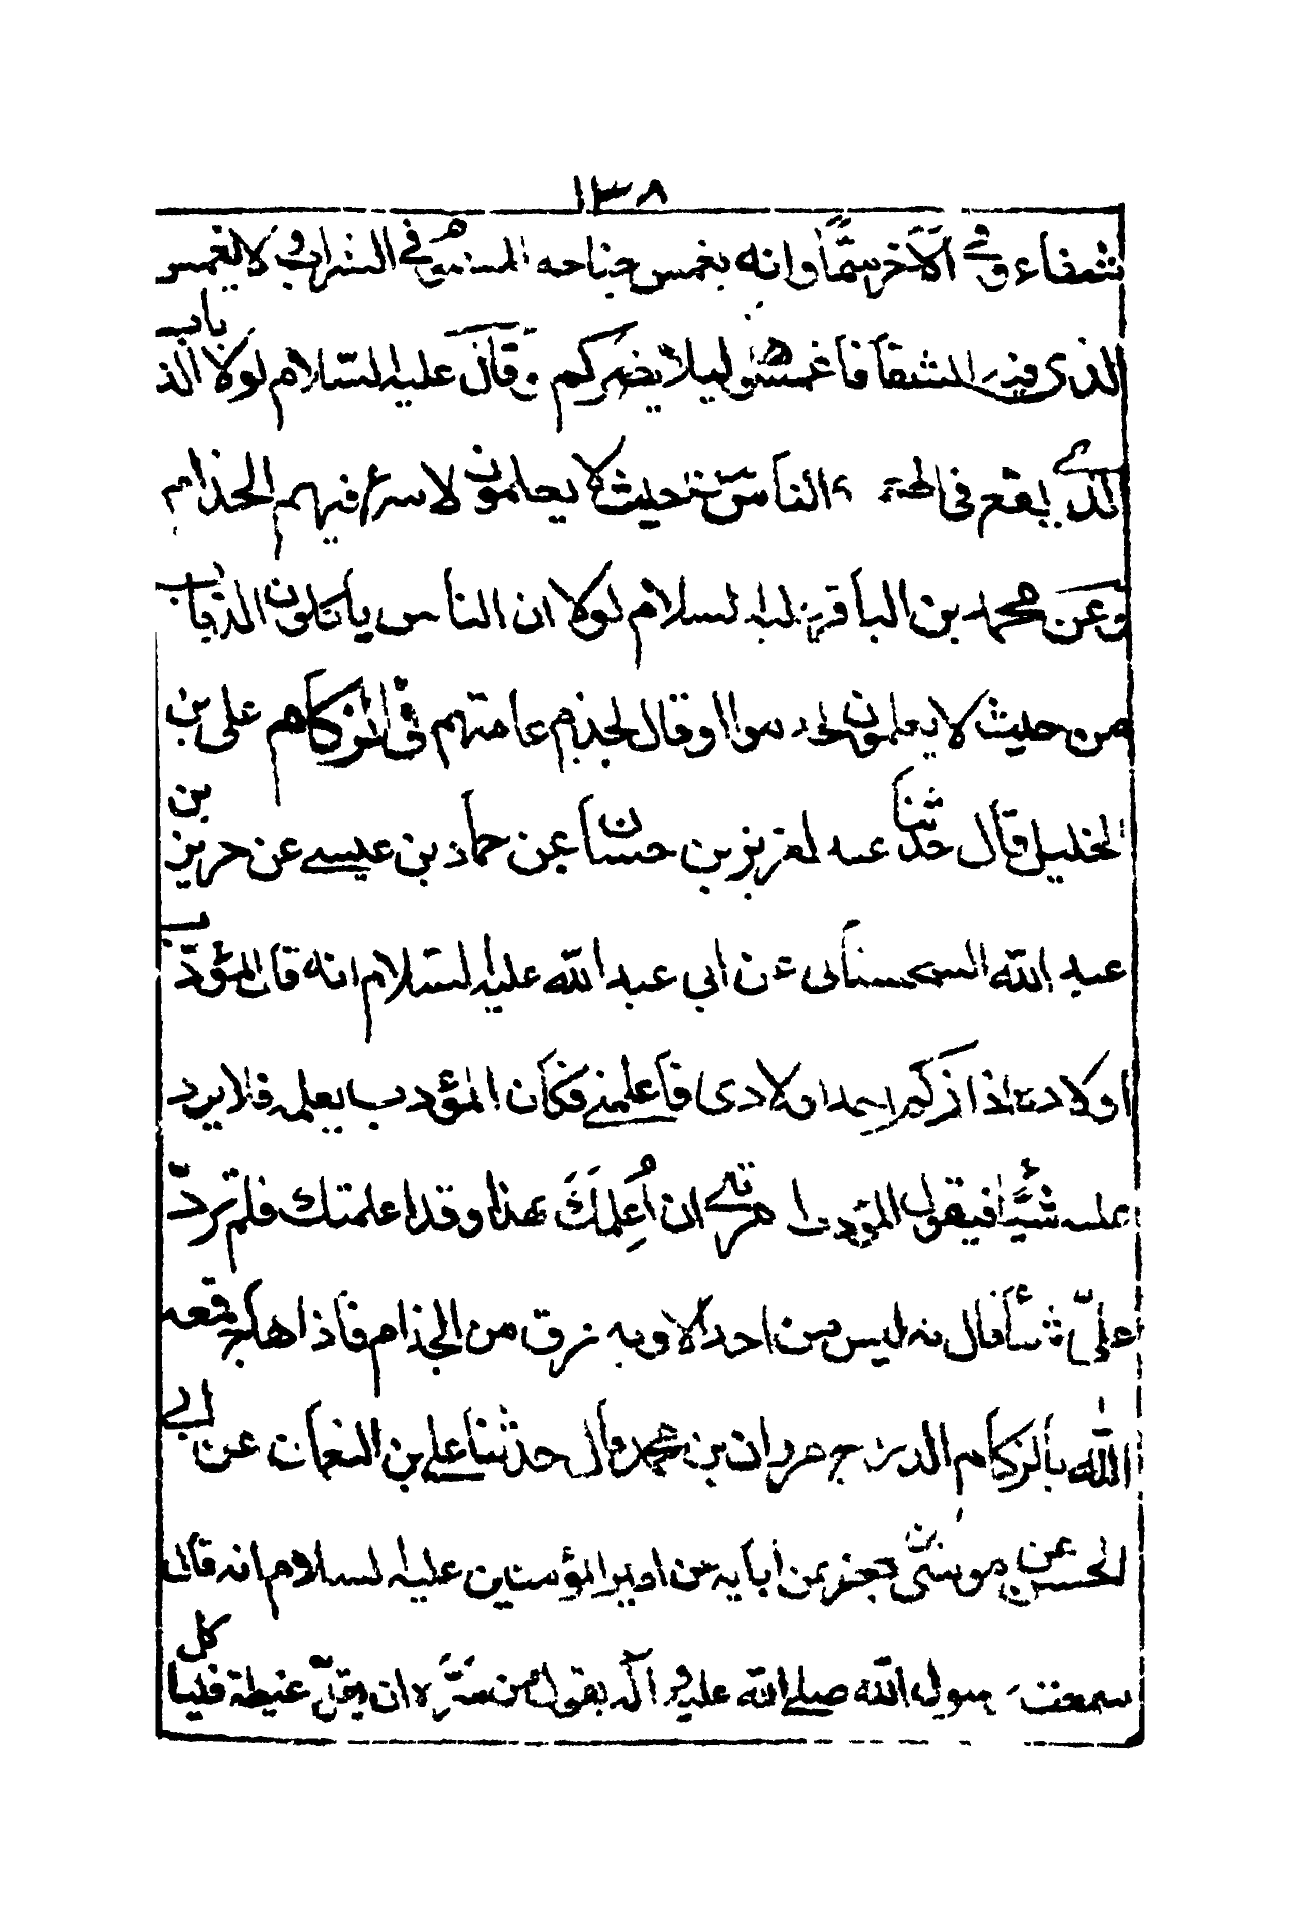 ١٣٨
شفاء وفي الآخر سمّاً وانه يغمس جناحه المسموم في الشراب ولا يغمس
الذى فيه الشفا فاغمسوه ليلا يضركم وقال عليه السلام لولا الذباب
الذي يقع في اطعمة الناس من حيث لا يعلمون لاسرع فيهم الجذام
وعن محمد بن الباقر عليه السلام لولا ان الناس ياكلون الذباب
من حيث لا يعلمون لجذموا او قال لجذم عامتهم في الزكام على بن
الخليل قال حدثنا عبد العزيز بن حسان عن حماد بن عيسى عن حريز بن
عبد الله السجستاني عن ابي عبد الله عليه السلام انه قال لمؤدب
اولاده اذا زكم احد اولادى فاعلمني فكان المؤدب يعلمه فلا يرد
عليه شيئاً فيقول المؤدب امرتني ان اُعلمك بهذا وقد اعلمتك فلم تردّ
علىّ شيئاً قال انه ليس من احد الا وبه عرق من الجذام فاذا هاج قمعه
الله بالزكام احمد بن محمد قال حدثنا علي بن النعمان عن ابي
الحسن عن موسى بن جعفر عن ابايه عن امير المؤمنين عليه السلام انه قال
سمعت رسول الله صلى الله عليه و آله يقول من سرّه ان يقلّ غيظه فلياكل